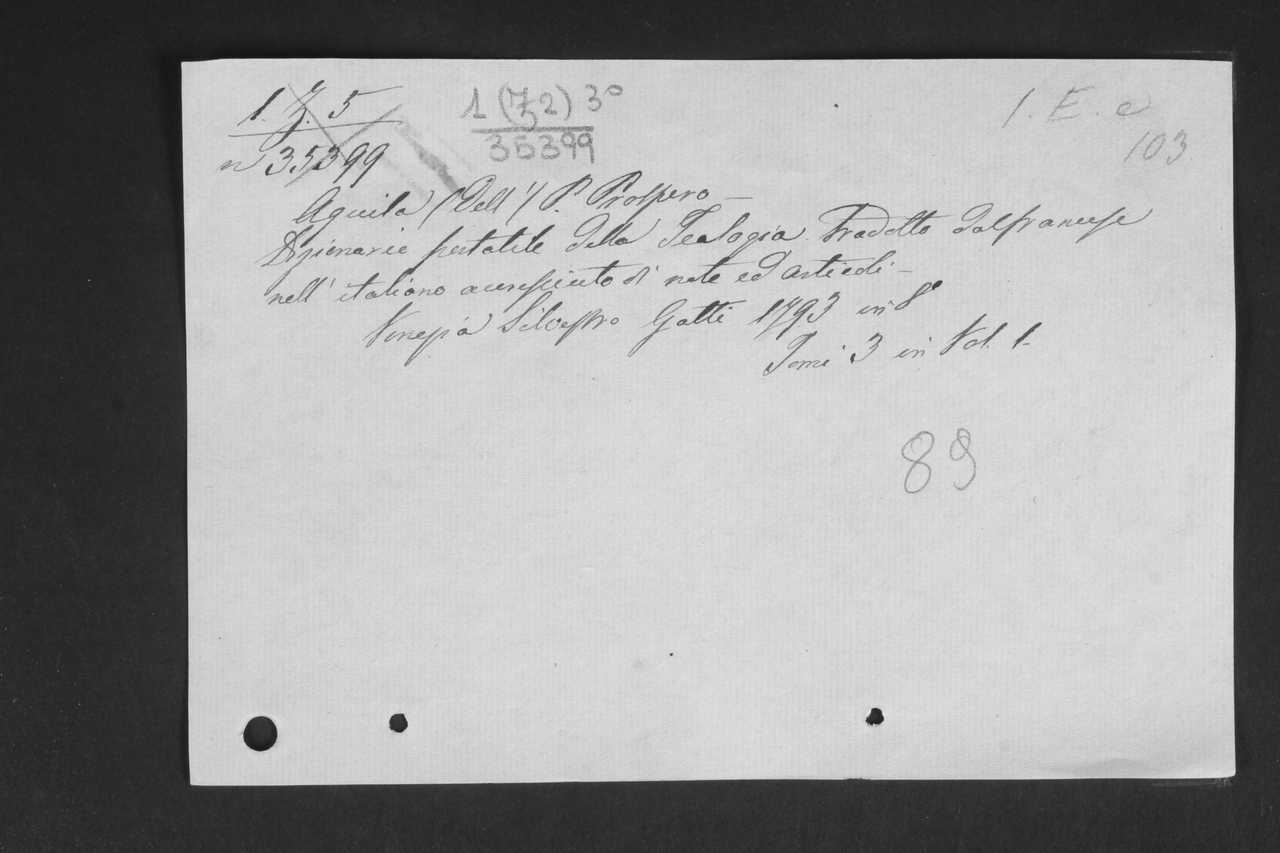 1. Z. 5
n 35399
1 (Z2) 3°
35399
1. E. e
103
Aquila (Dell') P. Prospero –
Dizionario portatile della Teologia Tradotto dal francese
nell'italiano accresciuto di note ed articoli –
Venezia Silvestro Gatti 1793 in 8°
Tomi 3 in Vol. 1.
89